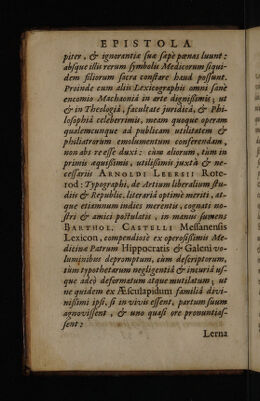 EPISTOLA
piter, & ignorantiæ suæ sæpè pœnas luunt:
absque illis rerum symbolis Medicorum siqui-
dem filiorum sacra constare haud possunt.
Proinde cum aliis Lexicographis omni sanè
encomio Machaoniâ in arte dignissimis; ut
& in Theologiâ, facultate juridicâ, & Phi-
losophiâ celeberrimis, meam quoque operam
qualemcunque ad publicam utilitatem &
philiatrorum emolumentum conferendam,
non abs re esse duxi: cùm aliorum, tùm in
primis æquissimis, utilissimis juxtà & ne-
cessariis ARNOLDI LEERSII Rote-
rod: Typographi, de Artium liberalium stu-
diis & Republic. literariâ optimè meriti, at-
que etiamnum indies merentis, cognati no-
stri & amici postulatis, in manus sumens
BARTHOL. CASTELLI Messanensis
Lexicon, compendiosè ex operosissimis Me-
dicinæ Patrum Hippocratis & Galeni vo-
luminibus depromptum, cùm descriptorum,
tùm typothetarum negligentiâ & incuriâ us-
que adeò deformatum atque mutilatum; ut
ne quidem ex Æsculapidum familiâ divi-
nissimi ipsi, si in vivis essent, partum suum
agnovissent, & uno quasi ore pronuntias-
sent:
Lerna